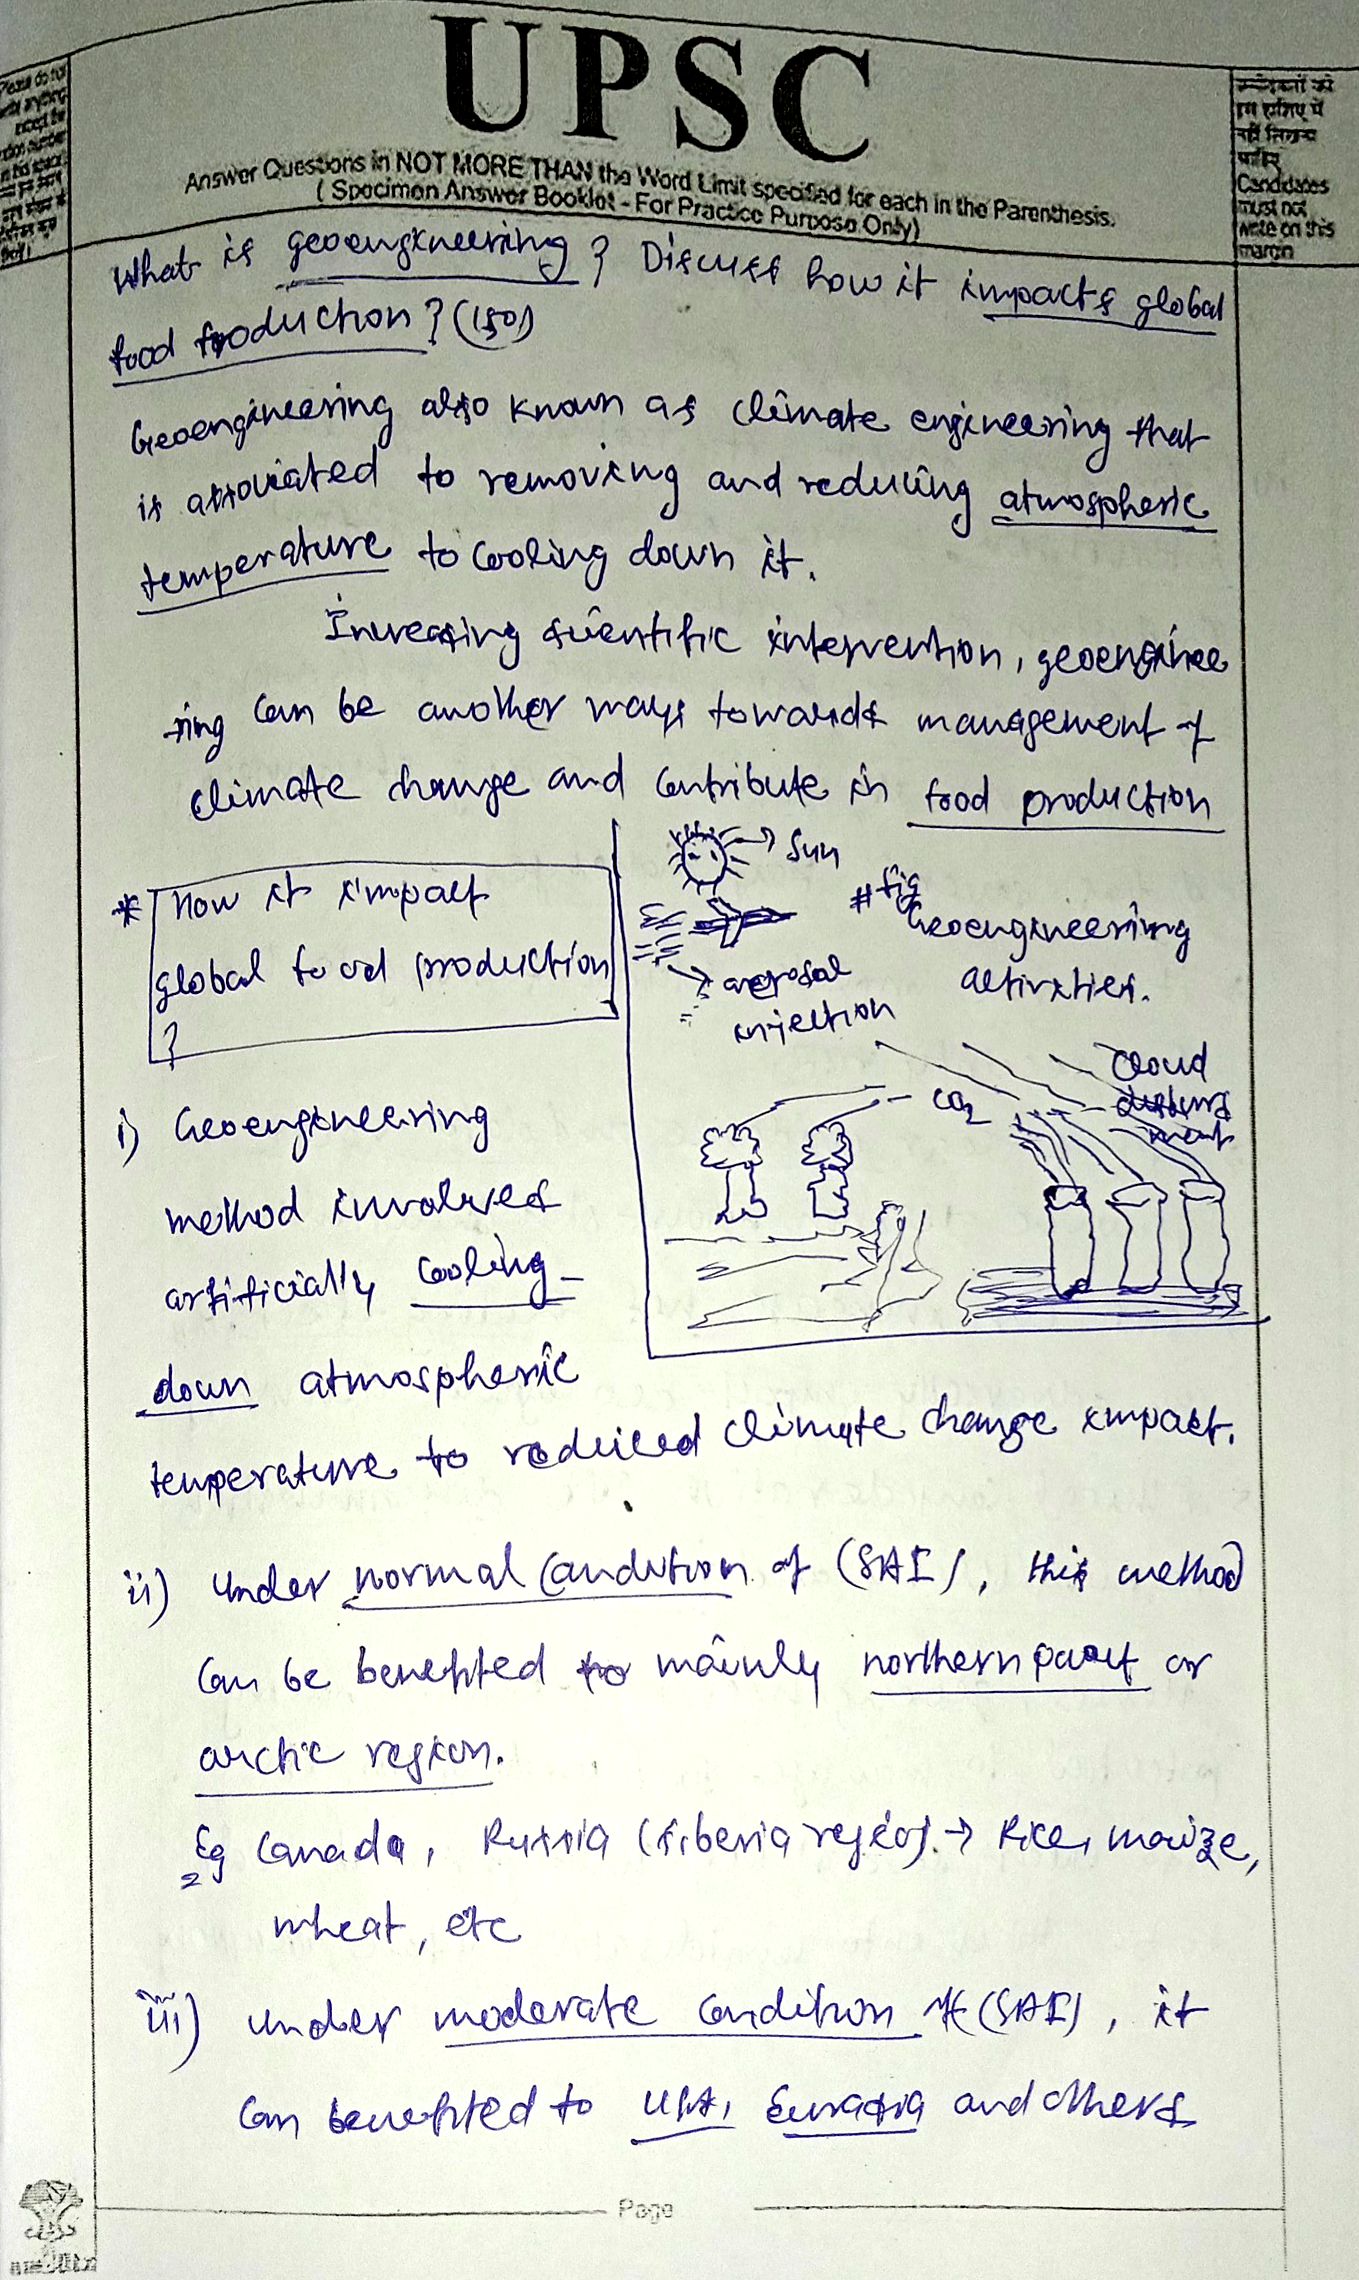 UPSC
Answer Questions in NOT MORE THAN the Word Limit specified for each in the Parenthesis.
( Specimen Answer Booklet - For Practice Purpose Only)
Candidates
must not
write on this
margin
What is geoengineering ? Discuss how it impacts global
food production ? (150)
Geoengineering also known as climate engineering that
is associated to removing and reducing atmospheric
temperature to cooling down it.
Increasing scientific intervention, geoenginee
ring can be another ways towards management of
climate change and contribute in food production
* How it impact
global food production
?
Sun
# fig
Geoengineering
activities.
aerosal
injection
CO2
Cloud
i) Geoengineering
method involves
artificially cooling
down atmospheric
temperature to reduced climate change impact.
ii) Under normal condition of (SAI), this method
can be benefited to mainly northern part or
arctic region.
Eg Canada, Russia (siberia region) → Rice, maize,
wheat, etc
iii) Under moderate condition of (SAI), it
can benefited to USA, Eurasia and others
Page